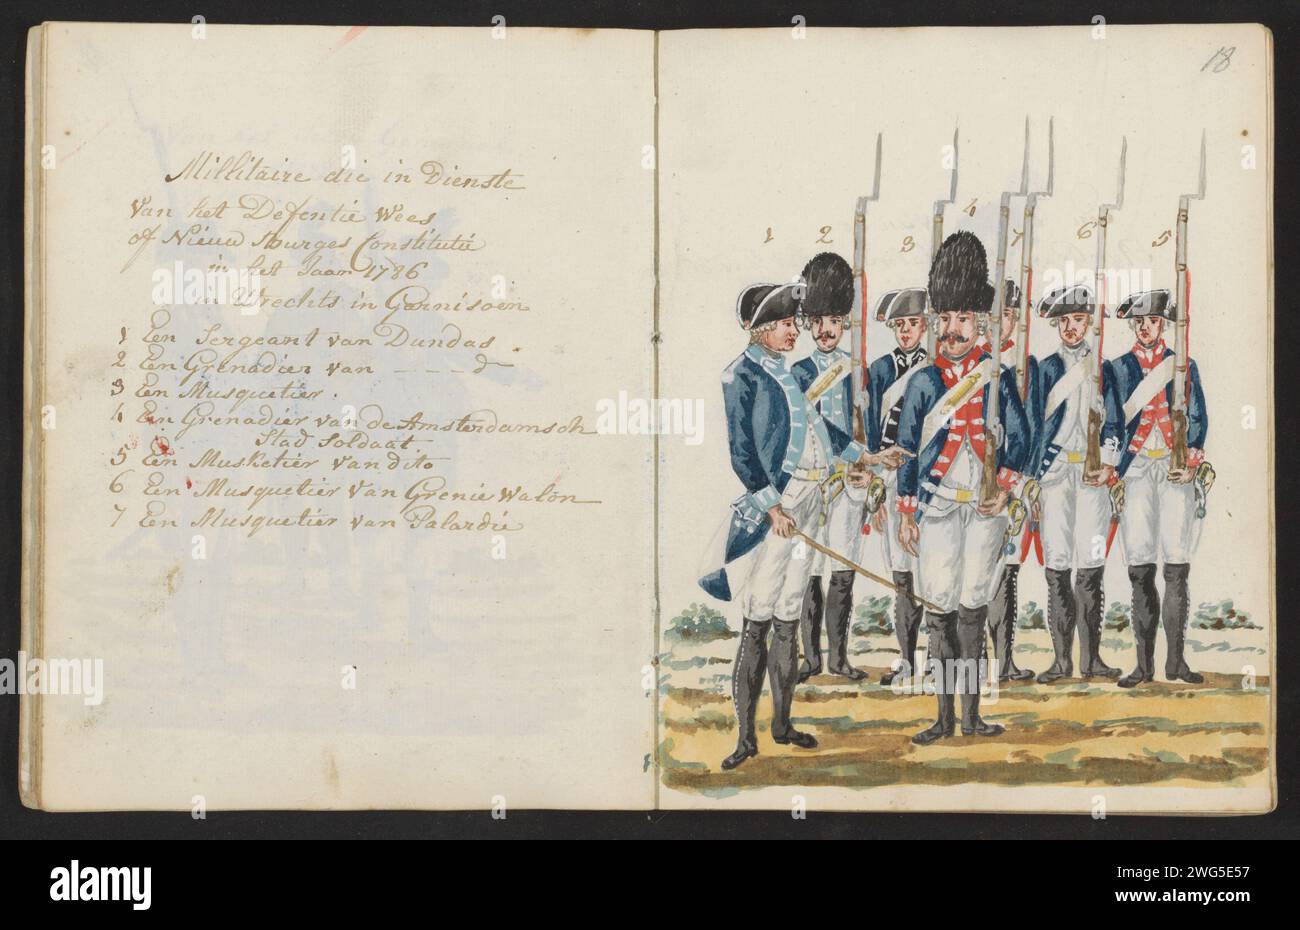 Millitaire die in Dienste
van het Defentie Wees
of Nieuw Burges Constitutie
in het Jaar 1786
in Utrechts in Garnisoen
1 Een Sergeant van Dundas.
2 Een Grenadier van - - - - - d°
3 Een Musquetier.
4 Een Grenadier van de Amsterdamsch
Stad Soldaat
5 Een Musketier van dito
6 Een Musquetier van Grenie Walon
7 Een Musquetier van Palardie
18
1 2 3 4 7 6 5
alamy
Image ID: 2WG5E57
www.alamy.com